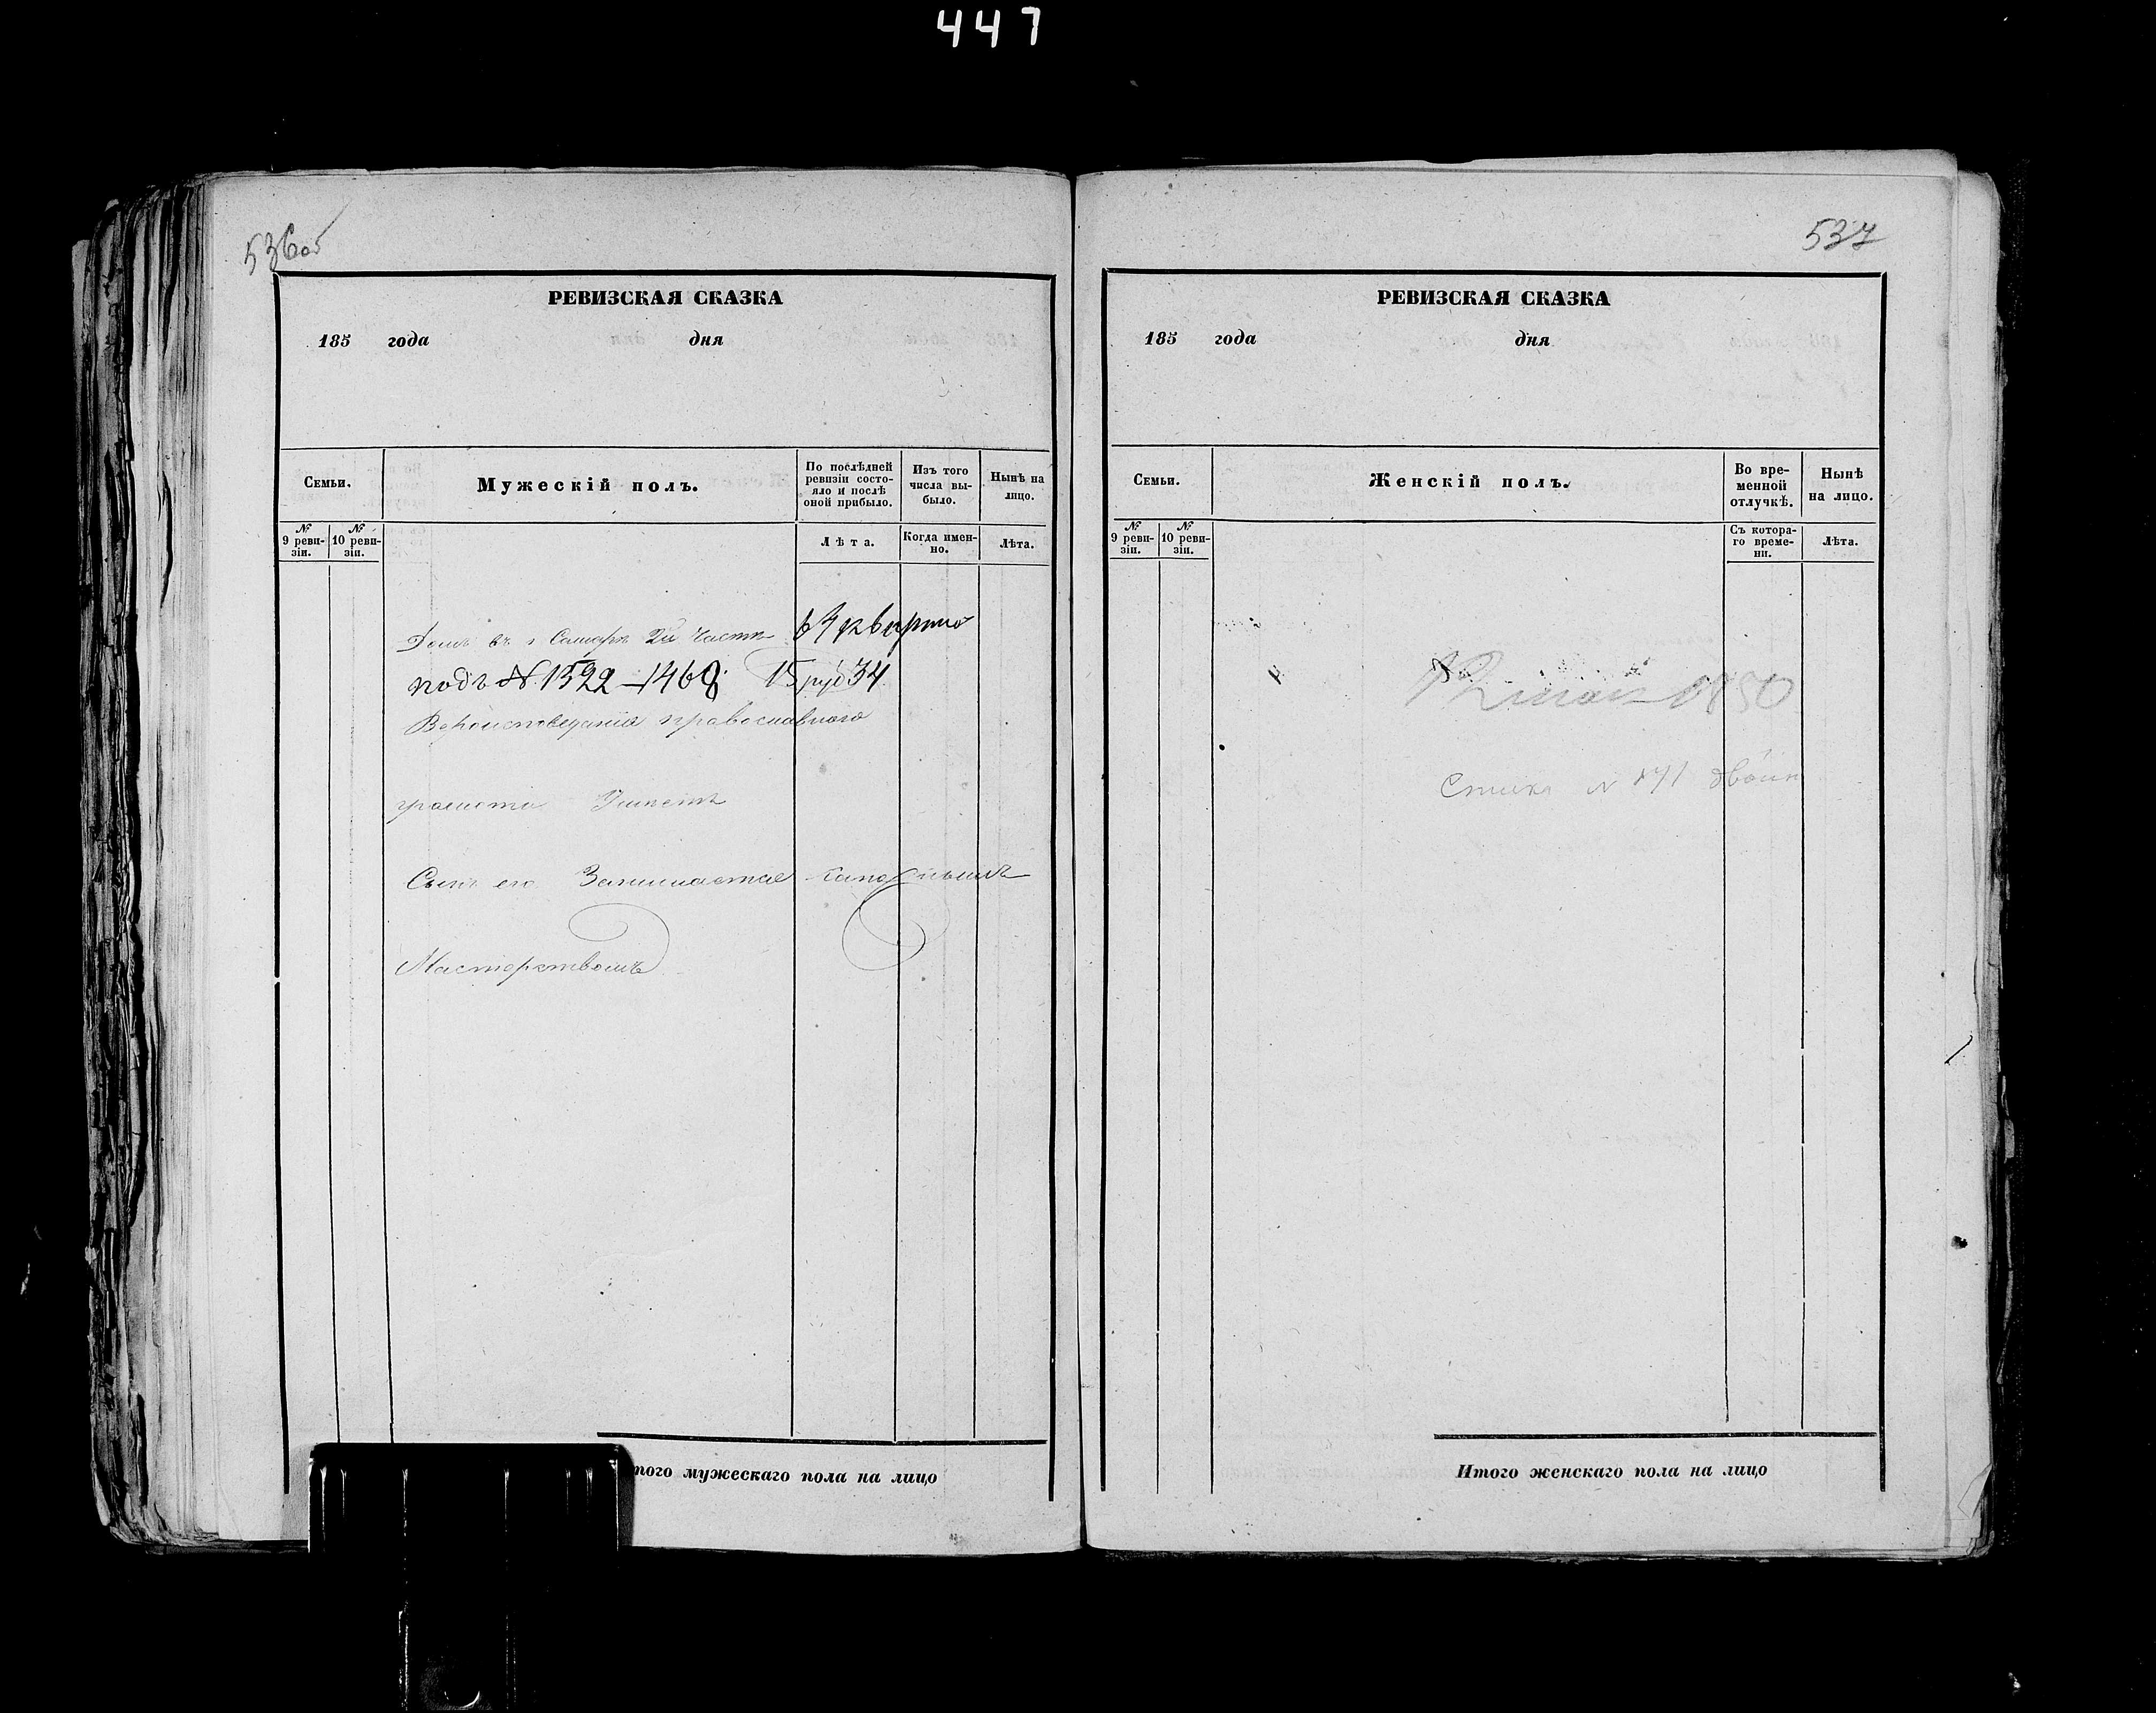 447
536об
РЕВИЗСКАЯ СКАЗКА
185 года дня
Семьи.
Мужескій полъ.
По послѣдней ревизіи состояло и послѣ оной прибыло.
Изъ того числа выбыло.
Нынѣ на лицо.
№ 9 ревизіи.
№ 10 ревизіи.
Лѣта.
Когда именно.
Лѣта.
Домъ въ г Самарѣ 2й части 64 квартала
подъ № 1522–1468 15 руб 34
Вероисповеданія православнаго
грамоте Умѣетъ
Сынъ его Занимается сапожнымъ
Мастерствомъ
того мужескаго пола на лицо
537
РЕВИЗСКАЯ СКАЗКА
185 года дня
Семьи.
Женскій полъ.
Во временной отлучкѣ.
Нынѣ на лицо.
№ 9 ревизіи.
№ 10 ревизіи.
Съ котораго времени.
Лѣта.
1850
№ 171
Итого женскаго пола на лицо